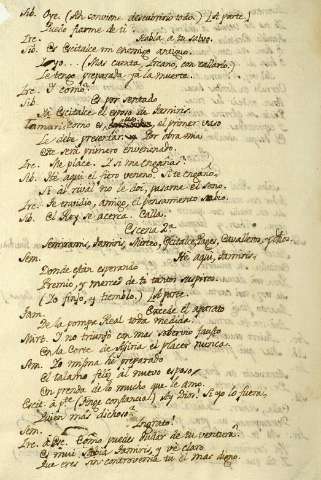 Sib. Oye. (Ah conviene descubrirlo todo.) [à parte.]
Puedo fiarme de ti?
Ire. Habla, è tu salvo.
Sib. Es Escitalce mi enemigo antiguo.
Luego ... (Mas cuenta, Ircano, con callarlo.)
Le tengo preparada ya la muerte.
Ire. Y como?
Sib. Es por sentado,
Sea Escitalce el esposo de Tamiris.
Tamaris como es al primer vaso
Le debe presentar. Por obra mia
Este será primero envenenado.
Ire. Me place. I si me engañas?
Sib. Hè aqui el fiero veneno. Si te engaño,
Si al rival no le doi, pasame el seno.
Ire. Te envidio, Amigo, el pensamiento sabio.
Sib. El Rey se acerca. Calla.
Escena 2ª
Semiramis, Tamiris, Mirteo, Escitalce, Pages, Cavalleros, y
Sem. Hè aqui, Tamiris,
Donde estàn esperando
Premio, y merced de ti tantos suspiros.
(Yo finjo, y tiemblo.) [à parte.
Tam. Excede el aparato
De la pompa Real toda medida.
Mirt. I no triunfò con mas sobervio fausto
En la Corte de Asiria el placer nunca.
Sem. Yo misma hè preparado
El talamo feliz al nuevo esposo
En prenda de lo mucho que le amo.
Escit. à (Finge constancia!) Ay Dios! Si yo lo fuera,
Quien mas dichoso?
Sem. Ingrato!
Ire. Como puedes dudar de tu ventura?
Es mui sabia Tamiris, y vè claro
Que eres sin controversia tu el mas digno.